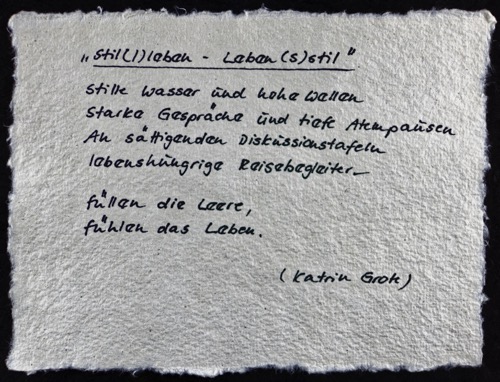 „Stil(l)leben - Leben(s)stil"
Stille Wasser und hohe Wellen
Starke Gespräche und tiefe Atempausen
An sättigenden Diskussionstafeln
lebenshungrige Reisebegleiter_
füllen die Leere,
fühlen das Leben.
(Katrin Grote)